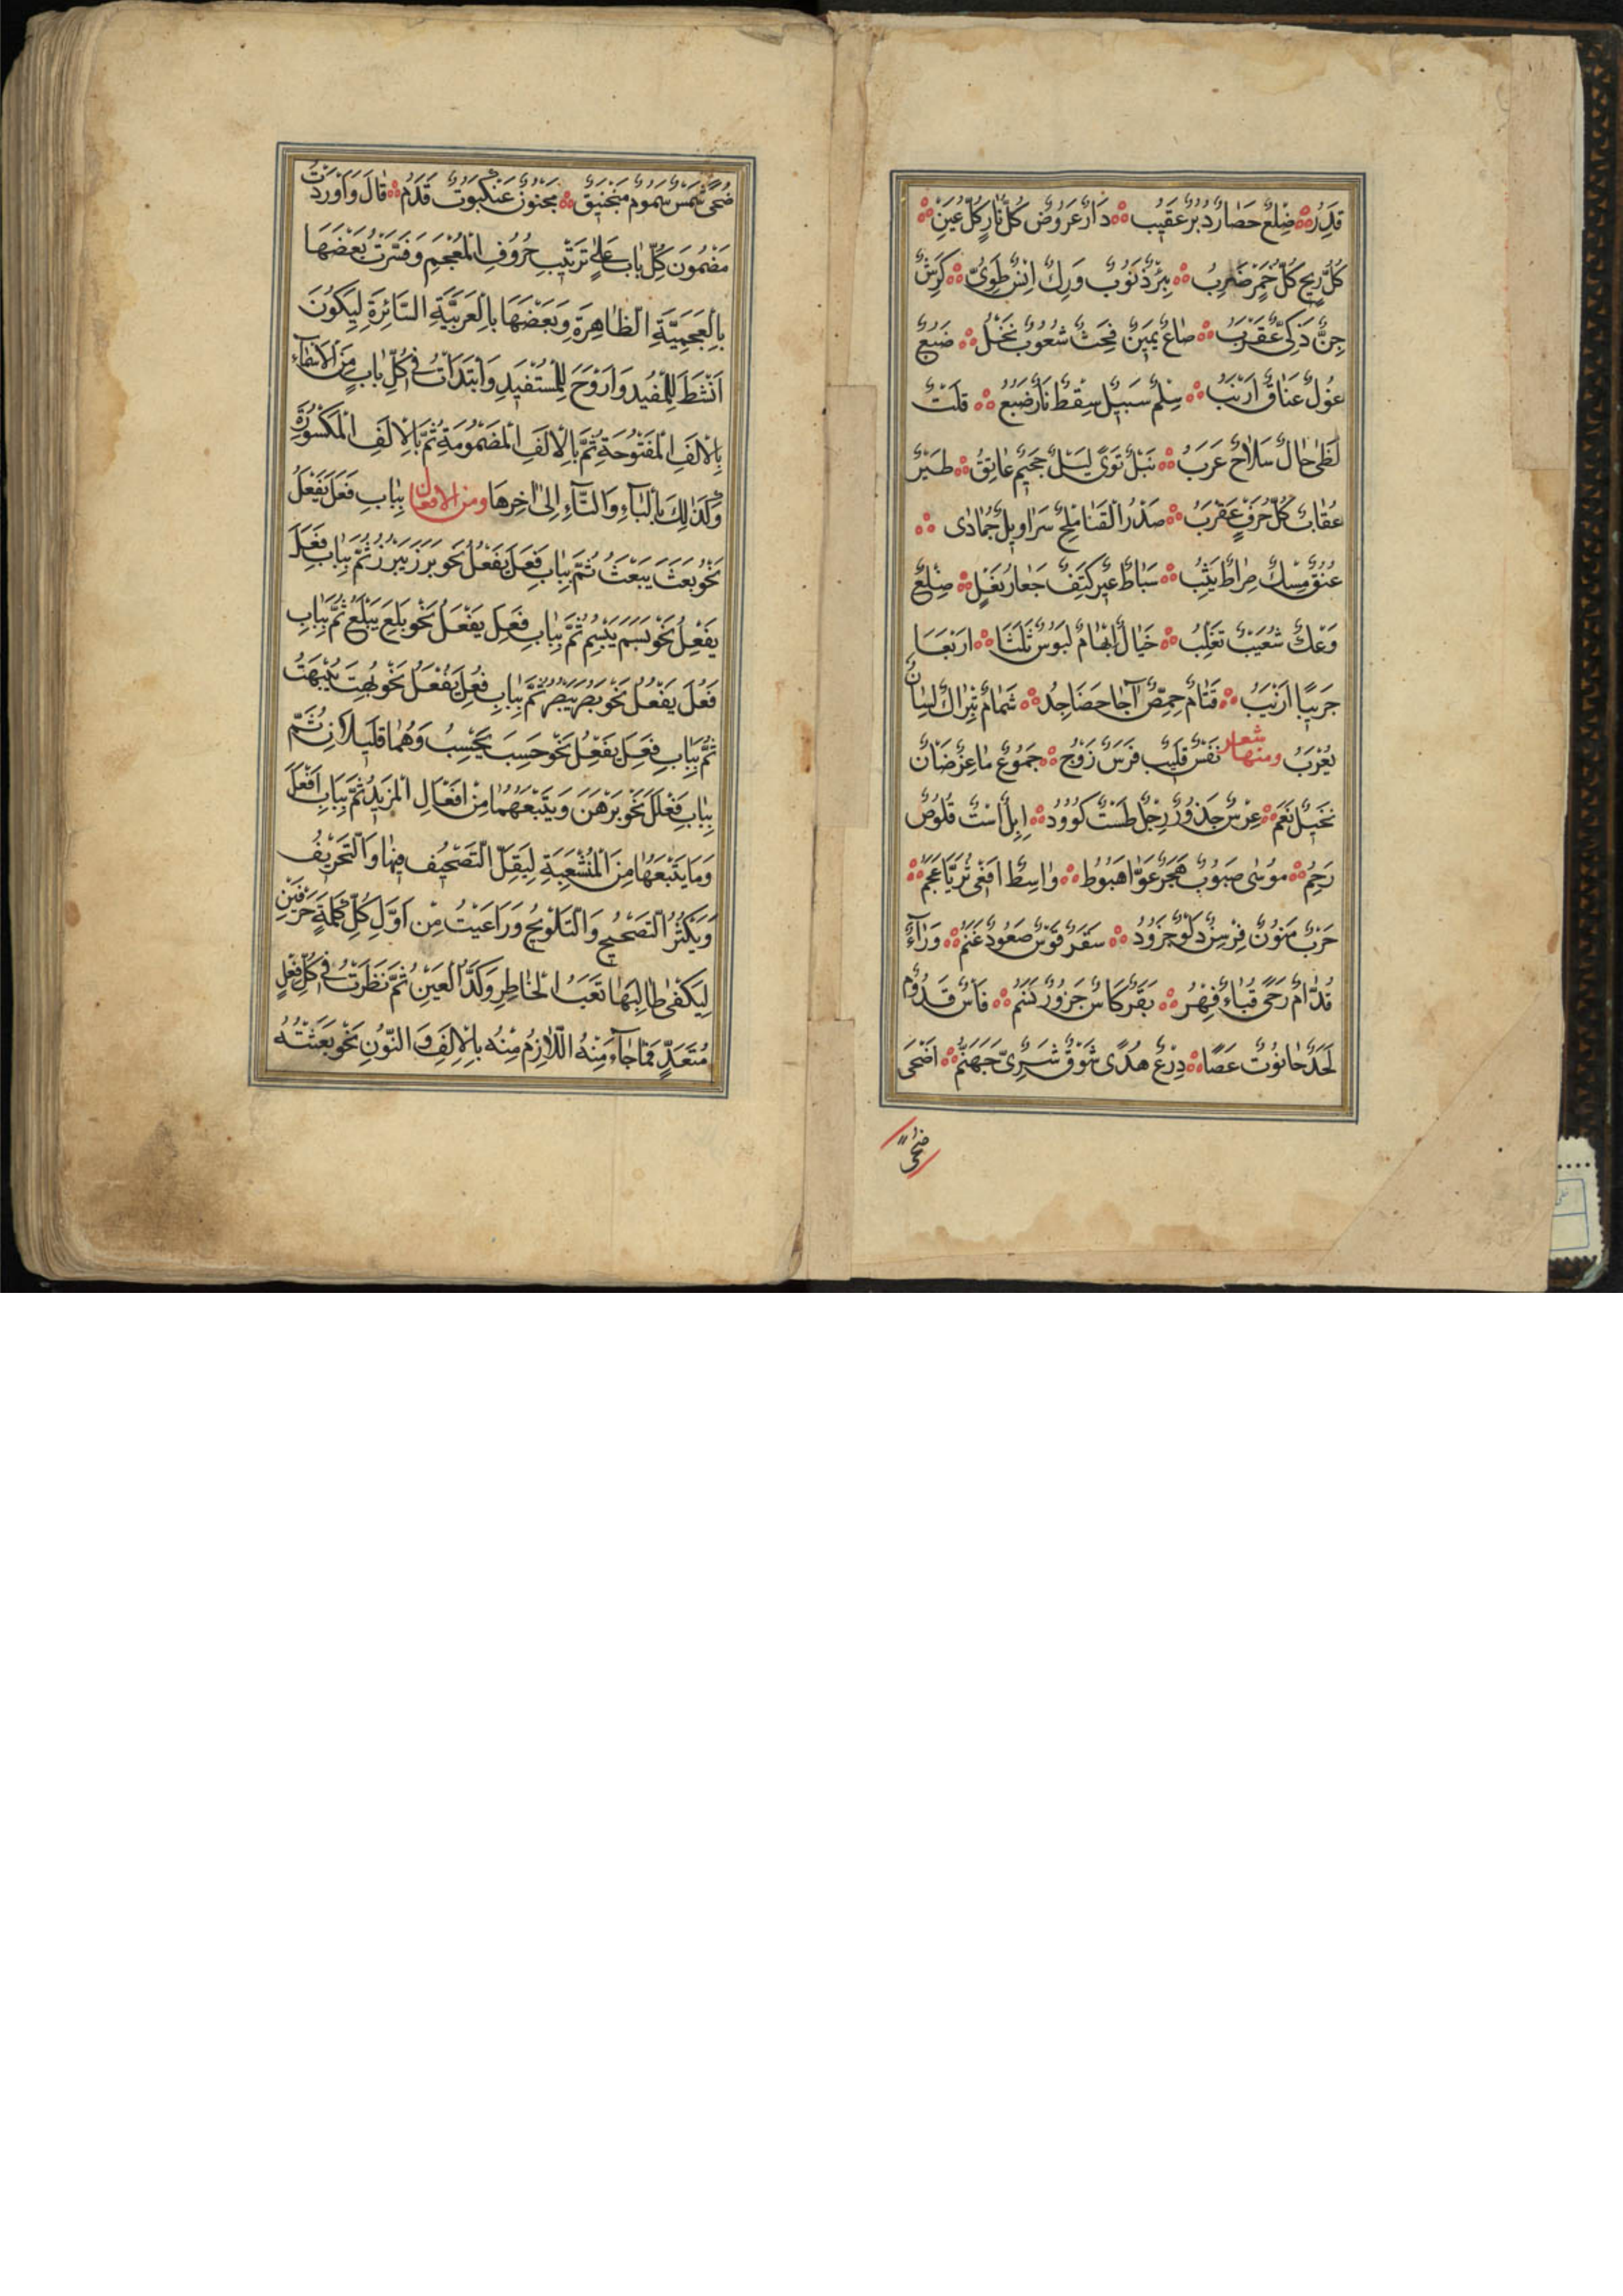 قَدِرُ ضِلَعٌ حَصَارٌ دُبُرٌ عَقِيبُ دَارٌ عَرُوضٌ كُلُّ نَارٍ كُلُّ عَيْنٍ
كُلُّ رِيحٍ كُلُّ خَمْرٍ ضَرَبُ بِئْرٌ ذَنُوبٌ وَرِكٌ اِنْسٌ طَوِىٌّ كَرِشٌ
جِنٌّ ذَكِىٌّ عَقْرَبُ صَاعٌ يَمِينٌ فِحَثٌ شَعُوبٌ نَخْلٌ ضَبُعٌ
غُولٌ عَنَاقٌ اَرْنَبُ سِلْمٌ سَبِيلٌ سِقْطٌ نَارٌ ضَبُعٌ قَلْتٌ
لَظٰى حَالٌ سَلَاحٌ عَرَبُ نَبْلٌ نَوًى لَيْلٌ جَحِيمٌ عَاتِقُ طَيْرٌ
عُقَابٌ كُلُّ حَرْفٍ عَقْرَبُ صَدْرُ الْقَنَا مِلْحٌ سَرَاوِيلٌ جُمَادٰى
عُنُقٌ مِسْكٌ صِرَاطٌ يَثِبُ سَبَاطٌ عِيرٌ كَتِفٌ جَعَارِ بَغْلٍ ضِلَعٌ
وَعْكٌ شُعَيْبٌ تَغْلِبُ خَيَالٌ اِبْهَامٌ لَبُوسٌ ثَلَثَا اَرْبَعَا
جَرْبِيَا اَرْنَبُ قَتَامٌ حِمِّصٌ آجَا حَضَاجِدُ شَمَامٌ بِرَاكٌ لِسَانُ
يُعْرَبُ ومنها شعار نَفْسٌ قَلِيبٌ فَرَسٌ زَوْجٌ جَمُوعٌ مَاعِزٌ ضَانٌ
نَخِيلٌ نَعَمٌ عِرْسٌ جَذُورٌ رِجْلٌ طَسْتٌ كَوُودٌ اِبِلٌ اسْتٌ قَلُوصٌ
رَحِمٌ مُوسٰى صَبُوبٌ هَجَرٌ عَوَّا هَبُوطٌ وَاسِطٌ اَفْعٰى ثُرَيَّا عَجَمٌ
حَرْبٌ مَنُونٌ فِرْسِنٌ دَلْوٌ جَزُورٌ سَقَرٌ قَوْسٌ صَعُودٌ غَنَمٌ وَرَآءٌ
قُدَّامٌ رَحًى قُبَاءٌ فِهْرٌ بَقَرٌ كَاسٌ جَزُورٌ نَنَمٌ فَاسٌ قَدُومٌ
لَحَدٌ حَانُوتٌ عَصًا دِرْعٌ هُدًى شَوْقٌ شَرِىٌّ جَهَنَّمُ اَضْحٰى
ضحى
ضُحًى شَمْسٌ سَمُومٌ مَنْجَنِيقٌ مَجْنُونٌ عَنْكَبُوتٌ قَدَمٌ قَالَ وَاَوْرَدْتُ
مَضْمُونَ كُلِّ بَابٍ عَلٰى تَرْتِيبِ حُرُوفِ الْمُعْجَمِ وَفَسَّرْتُ بَعْضَهَا
بِالْعَجَمِيَّةِ الظَّاهِرَةِ وَبَعْضَهَا بِالْعَرَبِيَّةِ السَّائِرَةِ لِيَكُونَ
اَنْشَطَ لِلْمُفِيدِ وَاَرْوَحَ لِلْمُسْتَفِيدِ وَابْتَدَاْتُ فِى كُلِّ بَابٍ مِنَ الْاَسْمَآءِ
بِالْاَلِفِ الْمَفْتُوحَةِ ثُمَّ بِالْاَلِفِ الْمَضْمُومَةِ ثُمَّ بِالْاَلِفِ الْمَكْسُورَةِ
وَكَذٰلِكَ بِالْبَآءِ وَالتَّآءِ اِلٰى اٰخِرِهَا ومن الافعال بِبَابِ فَعَلَ يَفْعَلُ
نَحْوُ بَعَثَ يَبْعَثُ ثُمَّ بِبَابِ فَعَلَ يَفْعُلُ نَحْوُ بَرَزَ يَبْرُزُ ثُمَّ بِبَابِ فَعَلَ
يَفْعِلُ نَحْوُ بَسَمَ يَبْسِمُ ثُمَّ بِبَابِ فَعِلَ يَفْعَلُ نَحْوُ بَلِعَ يَبْلَعُ ثُمَّ بِبَابِ
فَعُلَ يَفْعُلُ نَحْوُ بَصُرَ يَبْصُرُ ثُمَّ بِبَابِ فُعِلَ يُفْعَلُ نَحْوُ بُهِتَ يُبْهَتُ
ثُمَّ بِبَابِ فَعِلَ يَفْعِلُ نَحْوُ حَسِبَ يَحْسِبُ وَهُمَا قَلِيلَانِ ثُمَّ
بِبَابِ فَعْلَلَ نَحْوُ بَرْهَنَ وَيَتْبَعُهُمَا مِنْ اَفْعَالِ الْمَزِيدِ ثُمَّ بِبَابِ اَفْعَلَ
وَمَا يَتْبَعُهَا مِنَ الْمُنْشَعِبَةِ لِيَقِلَّ التَّصْحِيفُ فِيهَا وَالتَّحْرِيفُ
وَيَكْثُرَ التَّصْحِيحُ وَالتَّلْوِيحُ وَرَاعَيْتُ مِنْ اَوَّلِ كُلِّ كَلِمَةٍ حَرْفَيْنِ
لِيَكْفٰى طَالِبُهَا تَعَبَ الْخَاطِرِ وَكَدَّ الْعَيْنِ ثُمَّ نَظَرْتُ فِى كُلِّ فِعْلٍ
مُتَعَدٍّ فَمَا جَآءَ مِنْهُ اللَّازِمُ مِنْهُ بِالْاَلِفِ وَالنُّونِ نَحْوُ بَعَثْتُهُ